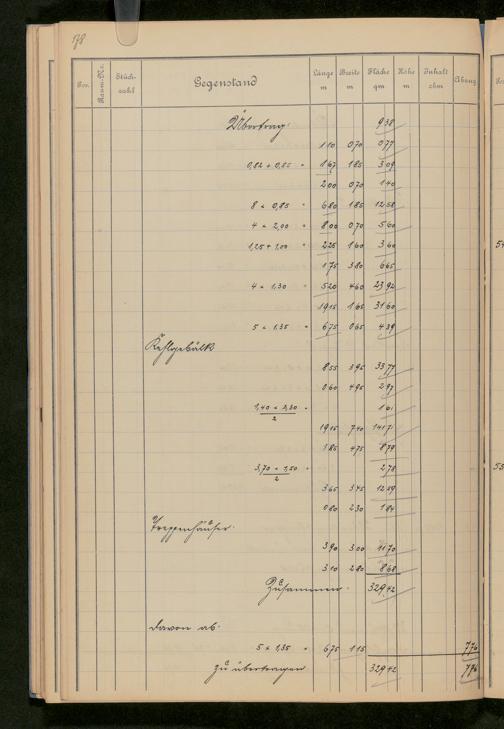 178
Pos. Raum-Nr. Stückzahl Gegenstand Länge m Breite m Fläche qm Höhe m Inhalt cbm Abzug
Übertrag. 938
1 10 0 70 0 77
0,82 + 0,85 = 1 67 1 85 3 09
2 00 0 70 1 40
8 × 0,85 = 6 80 1 85 12 58
4 × 2,00 = 8 00 0 70 5 60
1,25 + 1,00 = 2 25 1 60 3 60
1 75 3 80 6 65
4 × 1,30 = 5 20 4 60 23 92
19 15 1 65 31 60
5 × 1,35 = 6 75 0 65 4 39
Kehlgebälk
8 55 3 95 33 77
0 60 4 95 2 97
1,40 × 2,30 / 2 = 1 61
19 15 7 40 141 71
1 85 4 75 8 79
3,70 × 1,50 / 2 = 2 78
3 65 3 45 12 59
0 80 2 30 1 84
Treppenhäuser.
3 90 3 00 11 70
3 10 2 80 8 68
Zusammen. 329,42
Davon ab.
5 × 1,35 = 6 75 1 15 7 76
Zu übertragen 329 42 7 76